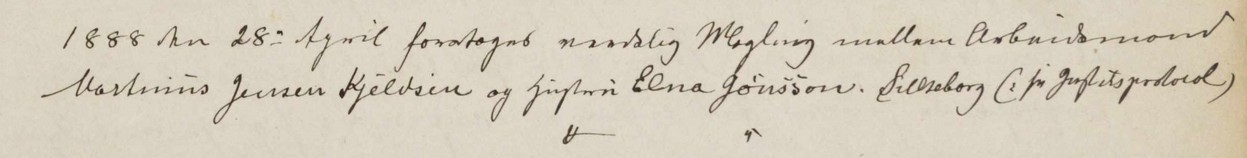 1888 den 28= April foretages verdslig Mægling mellem Arbeidsmand
Martinus Jensen Kjeldsen og Hustru Elna Jönsson. Silkeborg (: s: Justitsprotocol)
" "